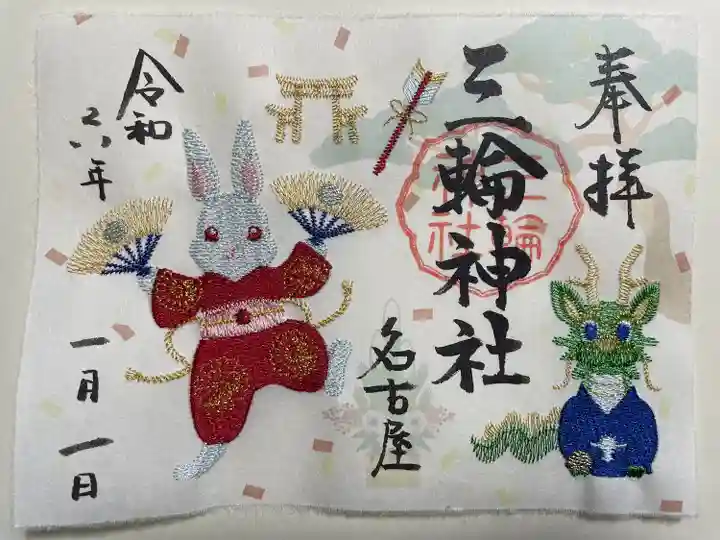 奉拝
三輪神社
三輪神社
名古屋
令和
六年
一月一日